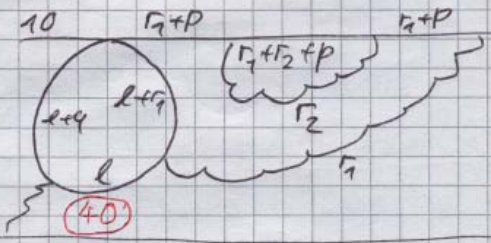 10 r₁+p r₁+p
r₁+r₂+p
l+q l+r₁
r₂
l r₁
40